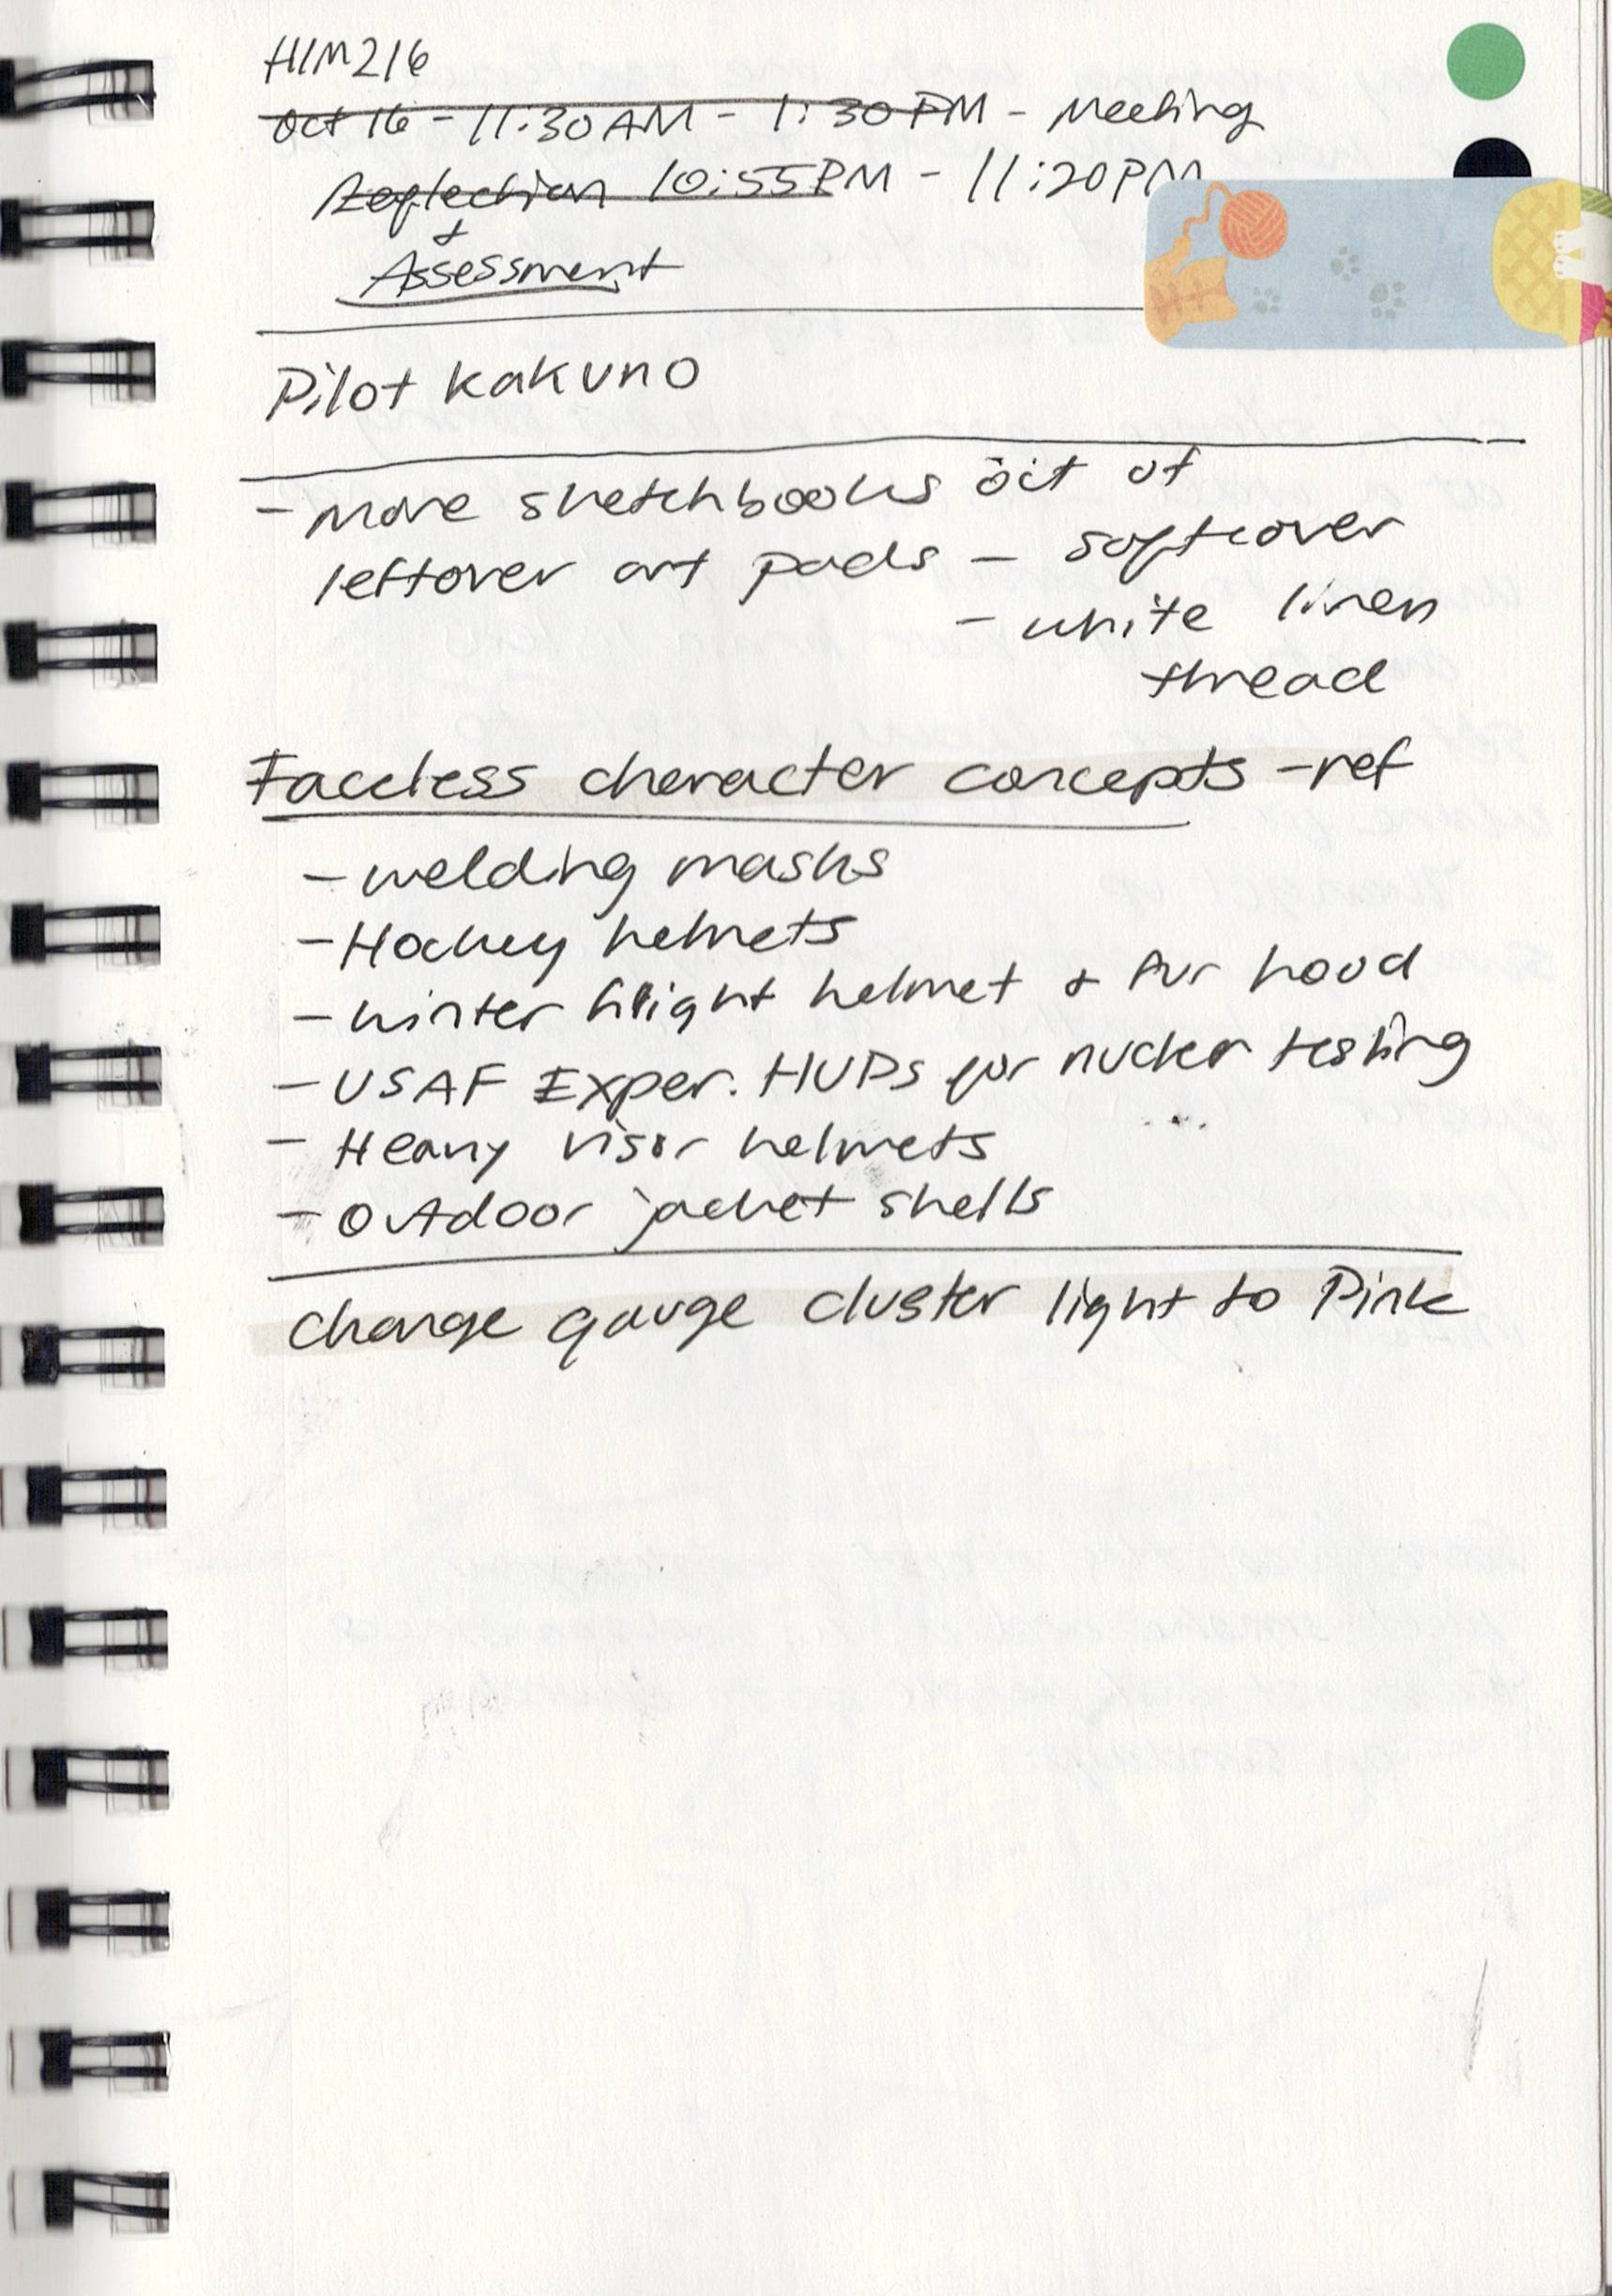 HIM216
Oct 16 - 11:30AM - 1:30PM - Meeting
Reflection 10:55PM - 11:20PM
+
Assessment
Pilot kakuno
- more sketchbooks oit of
leftover art pads - softcover
- white linen
thread
Faceless character concepts - ref
- welding masks
- Hockey helmets
- winter flight helmet + fur hood
- USAF Exper. HUDs for nuclear testing
- Heavy visor helmets
- Outdoor jacket shells
change gauge cluster light to Pink